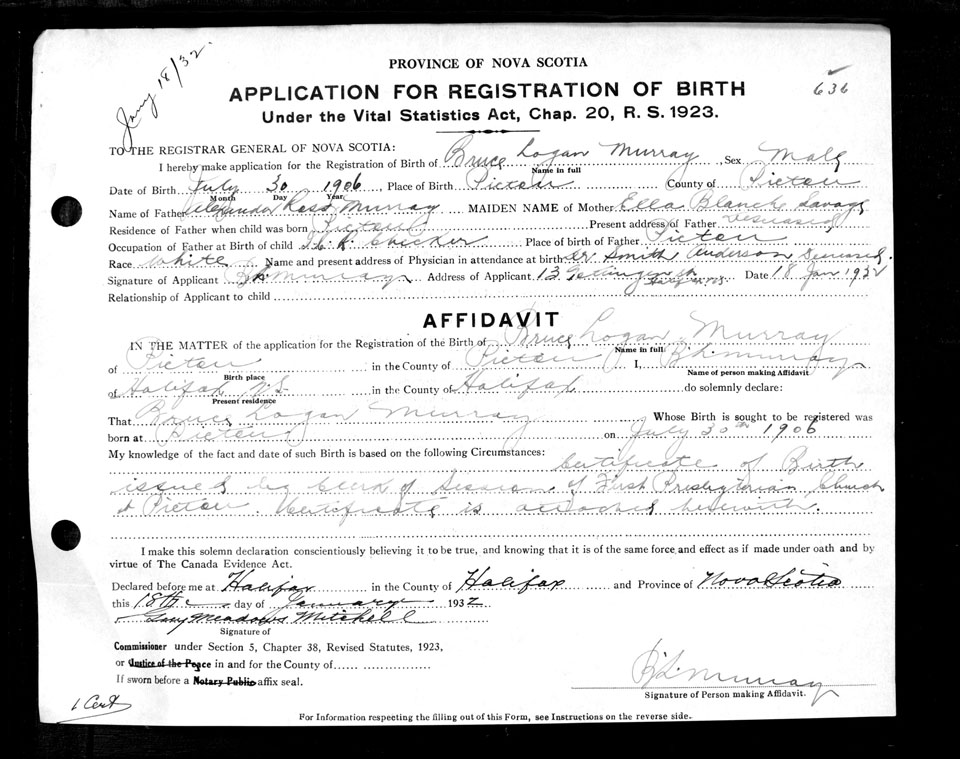 Jany 18/32.
PROVINCE OF NOVA SCOTIA
636
APPLICATION FOR REGISTRATION OF BIRTH
Under the Vital Statistics Act, Chap. 20, R. S. 1923.
TO THE REGISTRAR GENERAL OF NOVA SCOTIA:
I hereby make application for the Registration of Birth of Bruce Logan Murray Sex Male
Name in full
Date of Birth July 30 1906 Place of Birth Pictou County of Pictou
Month Day Year
Name of Father Alexander Ross Murray MAIDEN NAME of Mother Ella Blanch Savage
Residence of Father when child was born Pictou Present address of Father Deceased
Occupation of Father at Birth of child I.C.R. Checker Place of birth of Father Pictou
Race White Name and present address of Physician in attendance at birth Dr Smith Anderson Deceased.
Signature of Applicant B.L. Murray Address of Applicant 13 Gottingen St Halifax N.S. Date 18 Jan 1932
Relationship of Applicant to child
AFFIDAVIT
IN THE MATTER of the application for the Registration of the Birth of Bruce Logan Murray
Name in full
of Pictou in the County of Pictou I, B.L. Murray
Birth place Name of person making Affidavit
of Halifax N.S. in the County of Halifax do solemnly declare:
Present residence
That Bruce Logan Murray Whose Birth is sought to be registered was
born at Pictou on July 30th 1906
My knowledge of the fact and date of such Birth is based on the following Circumstances: Certificate of Birth
issued by Clerk of Session of First Presbyterian Church
Pictou. Certificate is attached herewith.
I make this solemn declaration conscientiously believing it to be true, and knowing that it is of the same force and effect as if made under oath and by
virtue of The Canada Evidence Act.
Declared before me at Halifax in the County of Halifax and Province of Nova Scotia
this 18th day of January 1932
Meadows Mitchell
Signature of
Commissioner under Section 5, Chapter 38, Revised Statutes, 1923,
or Justice of the Peace in and for the County of
If sworn before a Notary Public affix seal.
B.L. Murray
Signature of Person making Affidavit.
1 Cert
For Information respecting the filling out of this Form, see Instructions on the reverse side.